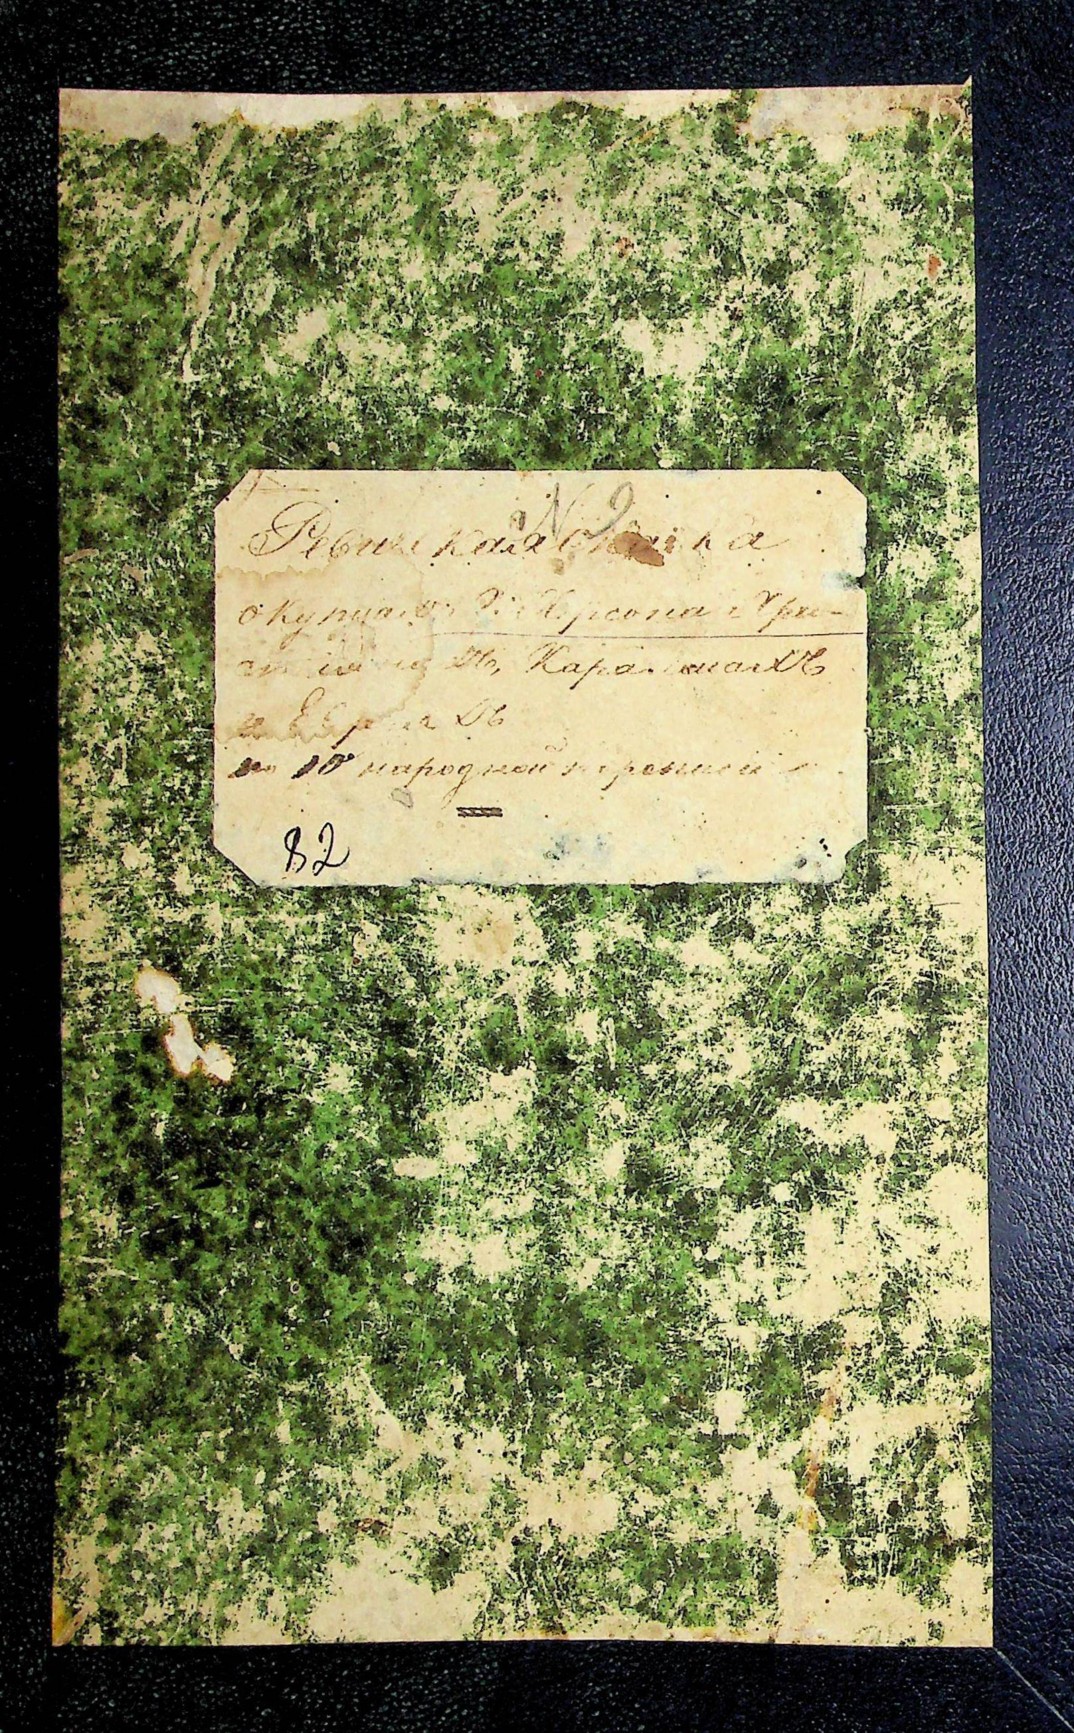 N 9
Ревизская сказка
о купцахъ г. Херсона Хри-
стіанахъ, Караимахъ
и Евреяхъ
по 10й народной переписи
82